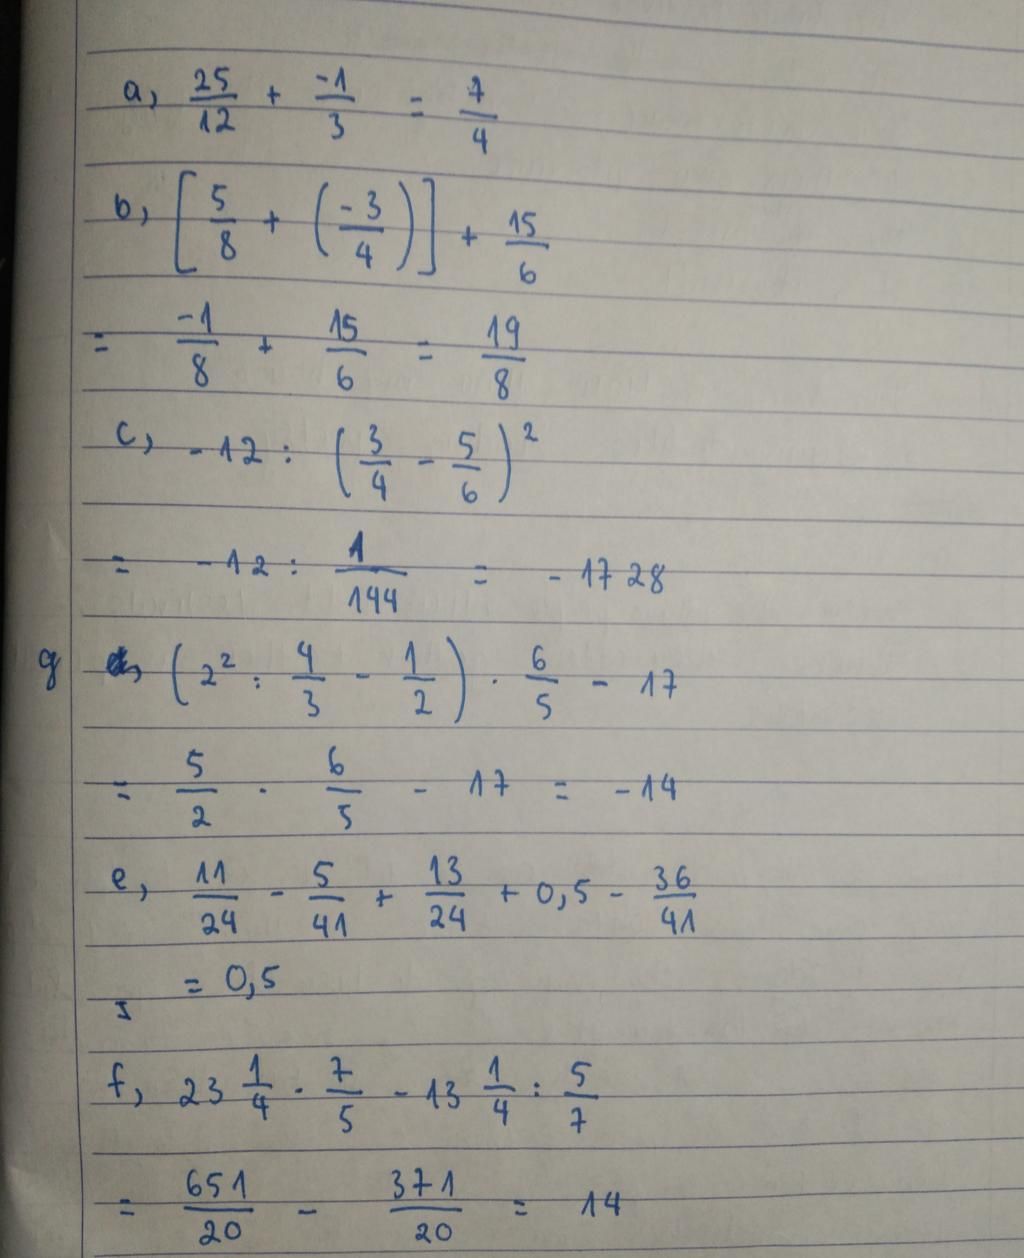 a, 25/12 + -1/3 = 7/4
b, [5/8 + (-3/4)] + 15/6
= -1/8 + 15/6 = 19/8
c, -12 : (3/4 - 5/6)²
= -12 : 1/144 = -1728
g (2² : 4/3 - 1/2) . 6/5 - 17
= 5/2 . 6/5 - 17 = -14
e, 11/24 - 5/41 + 13/24 + 0,5 - 36/41
= 0,5
f, 23 1/4 . 7/5 - 13 1/4 : 5/7
= 651/20 - 371/20 = 14